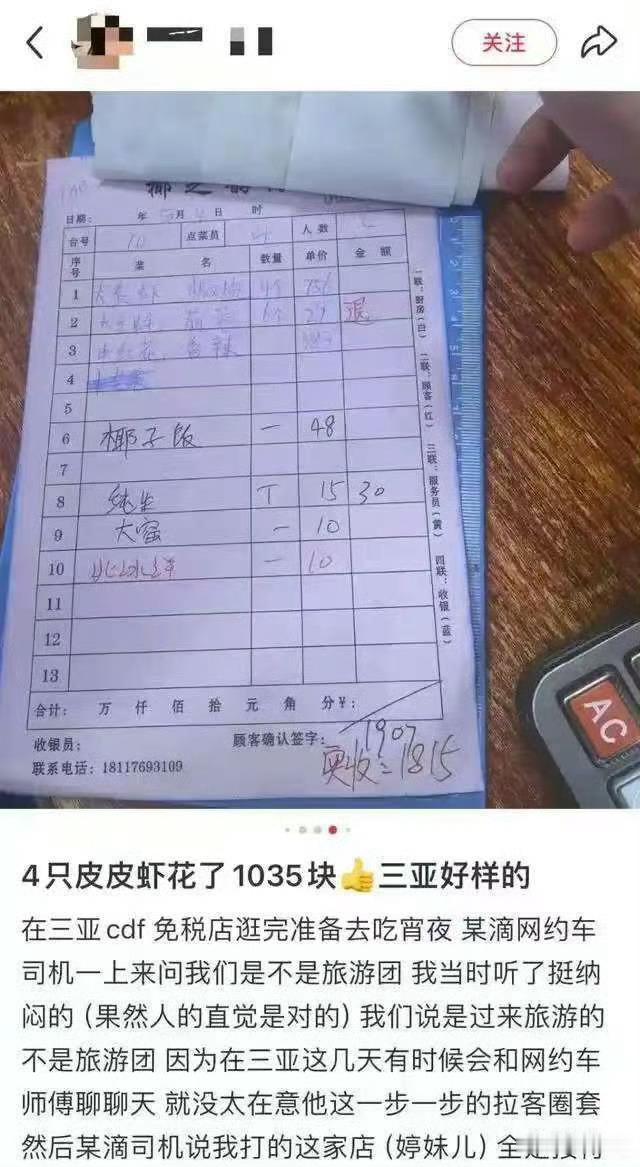 关注
日期： 年 5月 日 时
台号 10 点菜员 人数
序号 菜 名 数量 单价 金额
1 4个 756
2 6个 29 退
3 香辣
4
5
6 椰子饭 一 48
7
8 纯生 T 15 30
9 大窑 一 10
10 一 10
11
12
13
合计： 万 仟 佰 拾 元 角 分￥：
1907
收银员： 顾客确认签字：
实收：1815
联系电话：18117693109
一联：厨房（白） 二联：顾客（红） 三联：服务员（黄） 四联：收银（蓝）
AC
4只皮皮虾花了1035块👍三亚好样的
在三亚cdf 免税店逛完准备去吃宵夜 某滴网约车
司机一上来问我们是不是旅游团 我当时听了挺纳
闷的（果然人的直觉是对的）我们说是过来旅游的
不是旅游团 因为在三亚这几天有时候会和网约车
师傅聊聊天 就没太在意他这一步一步的拉客圈套
然后某滴司机说我打的这家店（婷妹儿）全是